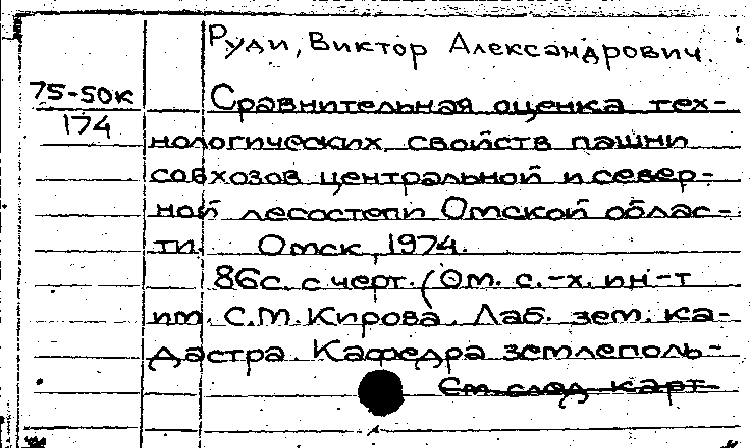 Руди, Виктор Александрович.
75-50к
174
Сравнительная оценка тех-
нологических свойств пашни
совхозов центральной и север-
ной лесостепи Омской облас-
ти. Омск, 1974.
86с. с черт. (Ом. с.-х. ин-т
им. С.М. Кирова. Лаб. зем. ка-
дастра. Кафедра землеполь-
См. след. карт.